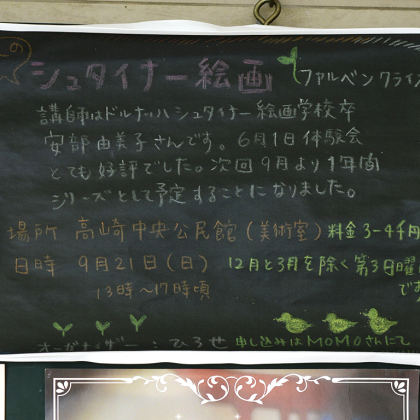 の
シュタイナー絵画
ファルベンクライス
講師はドルナッハシュタイナー絵画学校卒
安部由美子さんです。6月1日体験会
とても好評でした。次回9月より1年間
シリーズとして予定することになりました。
場所 高崎中央公民館(美術室) 料金3-4千円
日時 9月21日(日) 12月と3月を除く第3日曜
です
13時〜17時頃
オーガナイザー:ひろせ 申し込みはMOMOさんにて